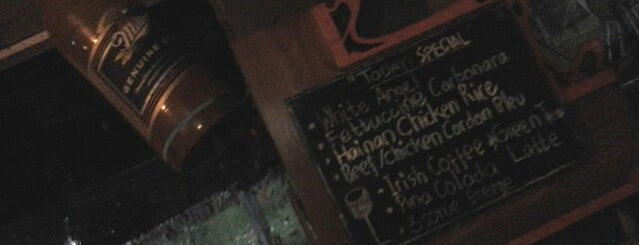 Miller
GENUINE
Today SPECIAL
• White Angel
• Fettuccine Carbonara
• Hainan Chicken Rice
• Beef/Chicken Cordon Bleu
• Irish Coffee * Green Tea
• Pina Colada Latte